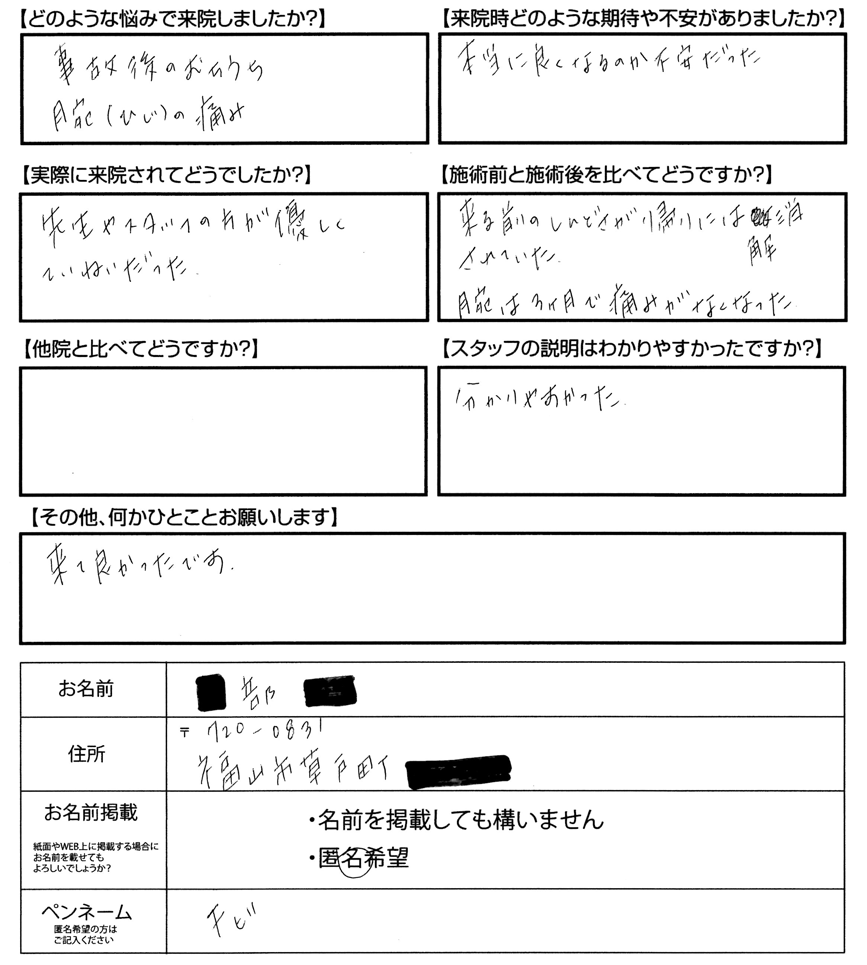 【どのような悩みで来院しましたか?】
事故後のおうろう
腕(ひじ)の痛み
【来院時どのような期待や不安がありましたか?】
本当に良くなるのか不安だった
【実際に来院されてどうでしたか?】
先生やスタッフの方が優しく
ていねいだった.
【施術前と施術後を比べてどうですか?】
来る前のしんどさが帰りには消
解
されていた.
腕は3ヶ月で痛みがなくなった.
【他院と比べてどうですか?】
【スタッフの説明はわかりやすかったですか?】
分かりやすかった.
【その他、何かひとことお願いします】
来て良かったです.
お名前
部
住所
〒720-0831
福山市草戸町
お名前掲載
紙面やWEB上に掲載する場合に
お名前を載せても
よろしいでしょうか?
・名前を掲載しても構いません
・匿名希望
ペンネーム
匿名希望の方は
ご記入ください
チビ